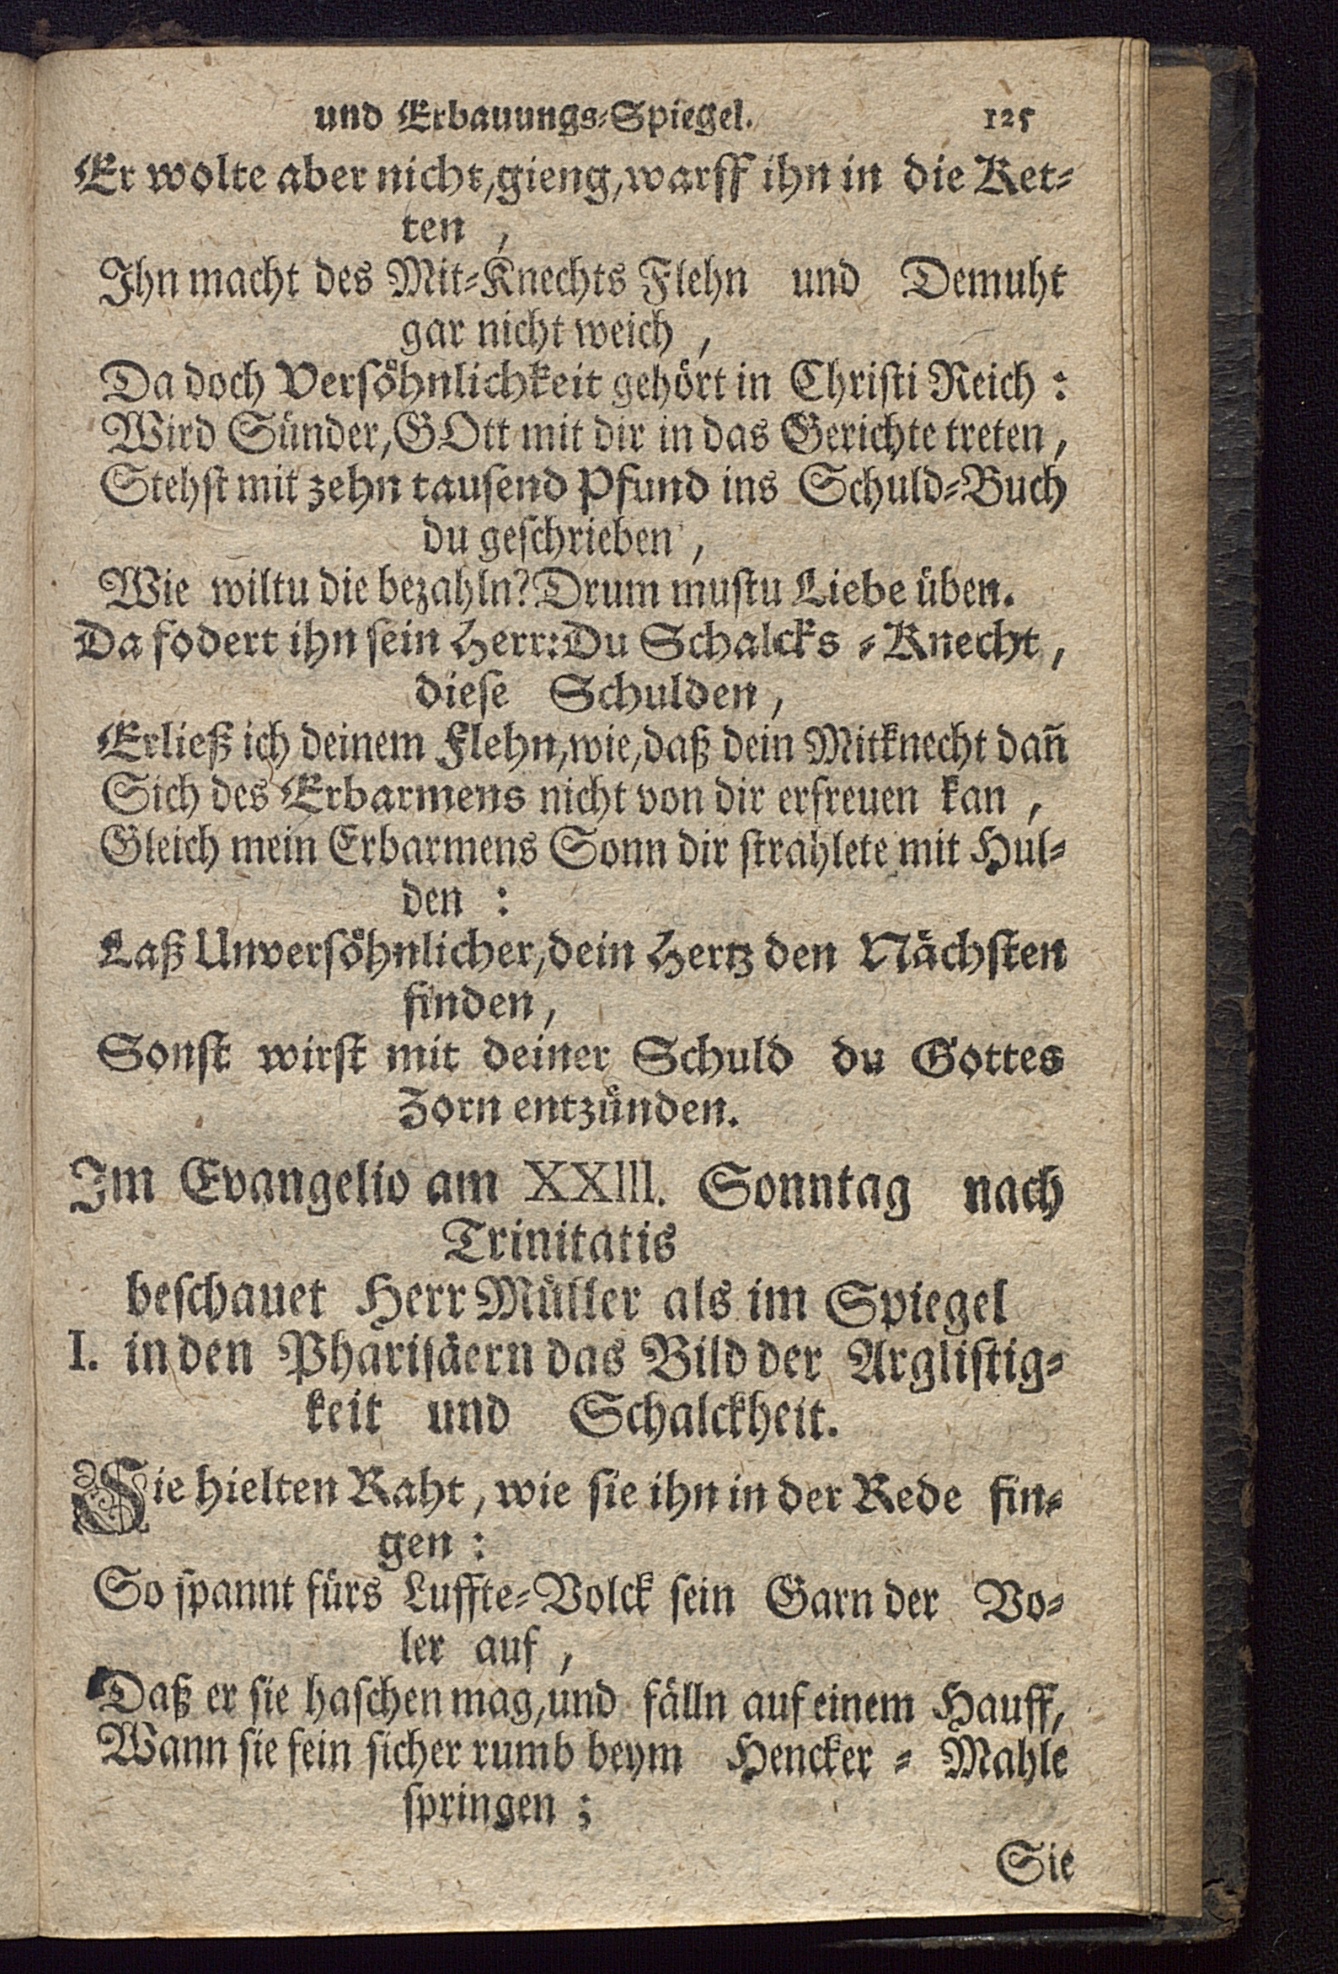 und Erbauungs-Spiegel. 125
Er wolte aber nicht, gieng, warff ihn in die Ket-
ten ,
Ihn macht des Mit-Knechts Flehn und Demuht
gar nicht weich ,
Da doch Versöhnlichkeit gehört in Christi Reich :
Wird Sünder, GOtt mit dir in das Gerichte treten ,
Stehst mit zehn tausend Pfund ins Schuld-Buch
du geschrieben ,
Wie wiltu die bezahln? Drum mustu Liebe üben.
Da fodert ihn sein Herr: Du Schalcks - Knecht ,
diese Schulden ,
Erließ ich deinem Flehn, wie, daß dein Mitknecht dañ
Sich des Erbarmens nicht von dir erfreuen kan ,
Gleich mein Erbarmens Sonn dir strahlete mit Hul-
den :
Laß Unversöhnlicher, dein Hertz den Nächsten
finden ,
Sonst wirst mit deiner Schuld du Gottes
Zorn entzünden.
Im Evangelio am XXIII. Sonntag nach
Trinitatis
beschauet Herr Müller als im Spiegel
I. in den Pharisäern das Bild der Arglistig-
keit und Schalckheit.
Sie hielten Raht , wie sie ihn in der Rede fin-
gen :
So spannt fürs Luffte-Volck sein Garn der Vo-
ler auf ,
Daß er sie haschen mag, und fälln auf einem Hauff,
Wann sie fein sicher rumb beym Hencker - Mahle
springen ;
Sie